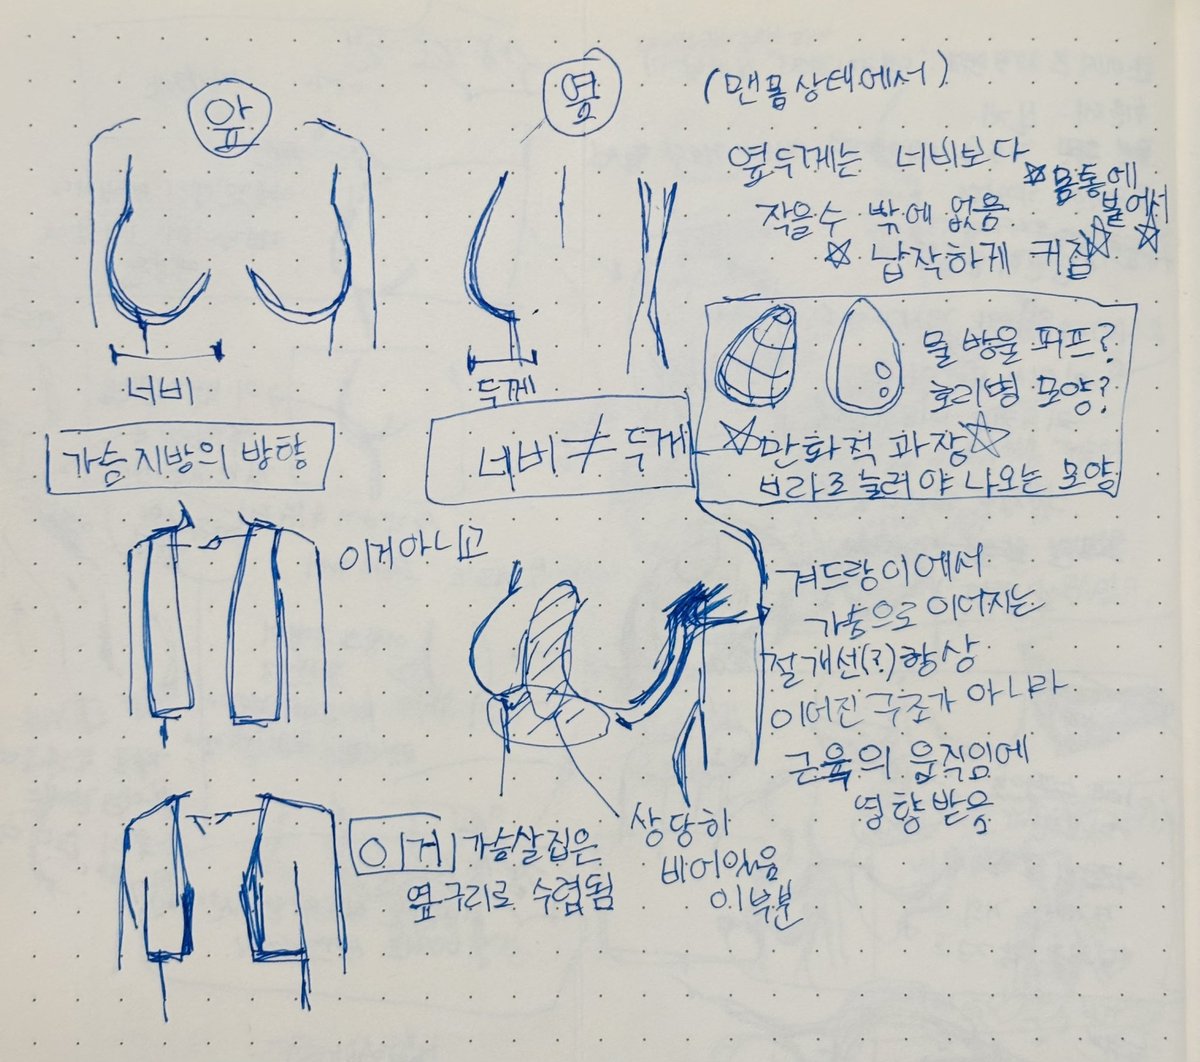 앞
옆
(맨몸상태에서)
옆두께는 너비보다
작을수 밖에 없음
☆몸통에
붙어서☆
☆ 납작하게 퀴짐☆
너비
두께
가슴지방의 방향
너비≠두께
물방울 퍼프?
호리병 모양?
☆만화적 과장☆
브라로 눌러야 나오는 모양
이거아니고
겨드랑이에서
가슴으로 이어지는
절개선(?)항상
이어진 구조가 아니라
근육의 움직임에
영향받음
이거 가슴살집은
옆구리로 수렴됨
상당히
비어있음
이부분